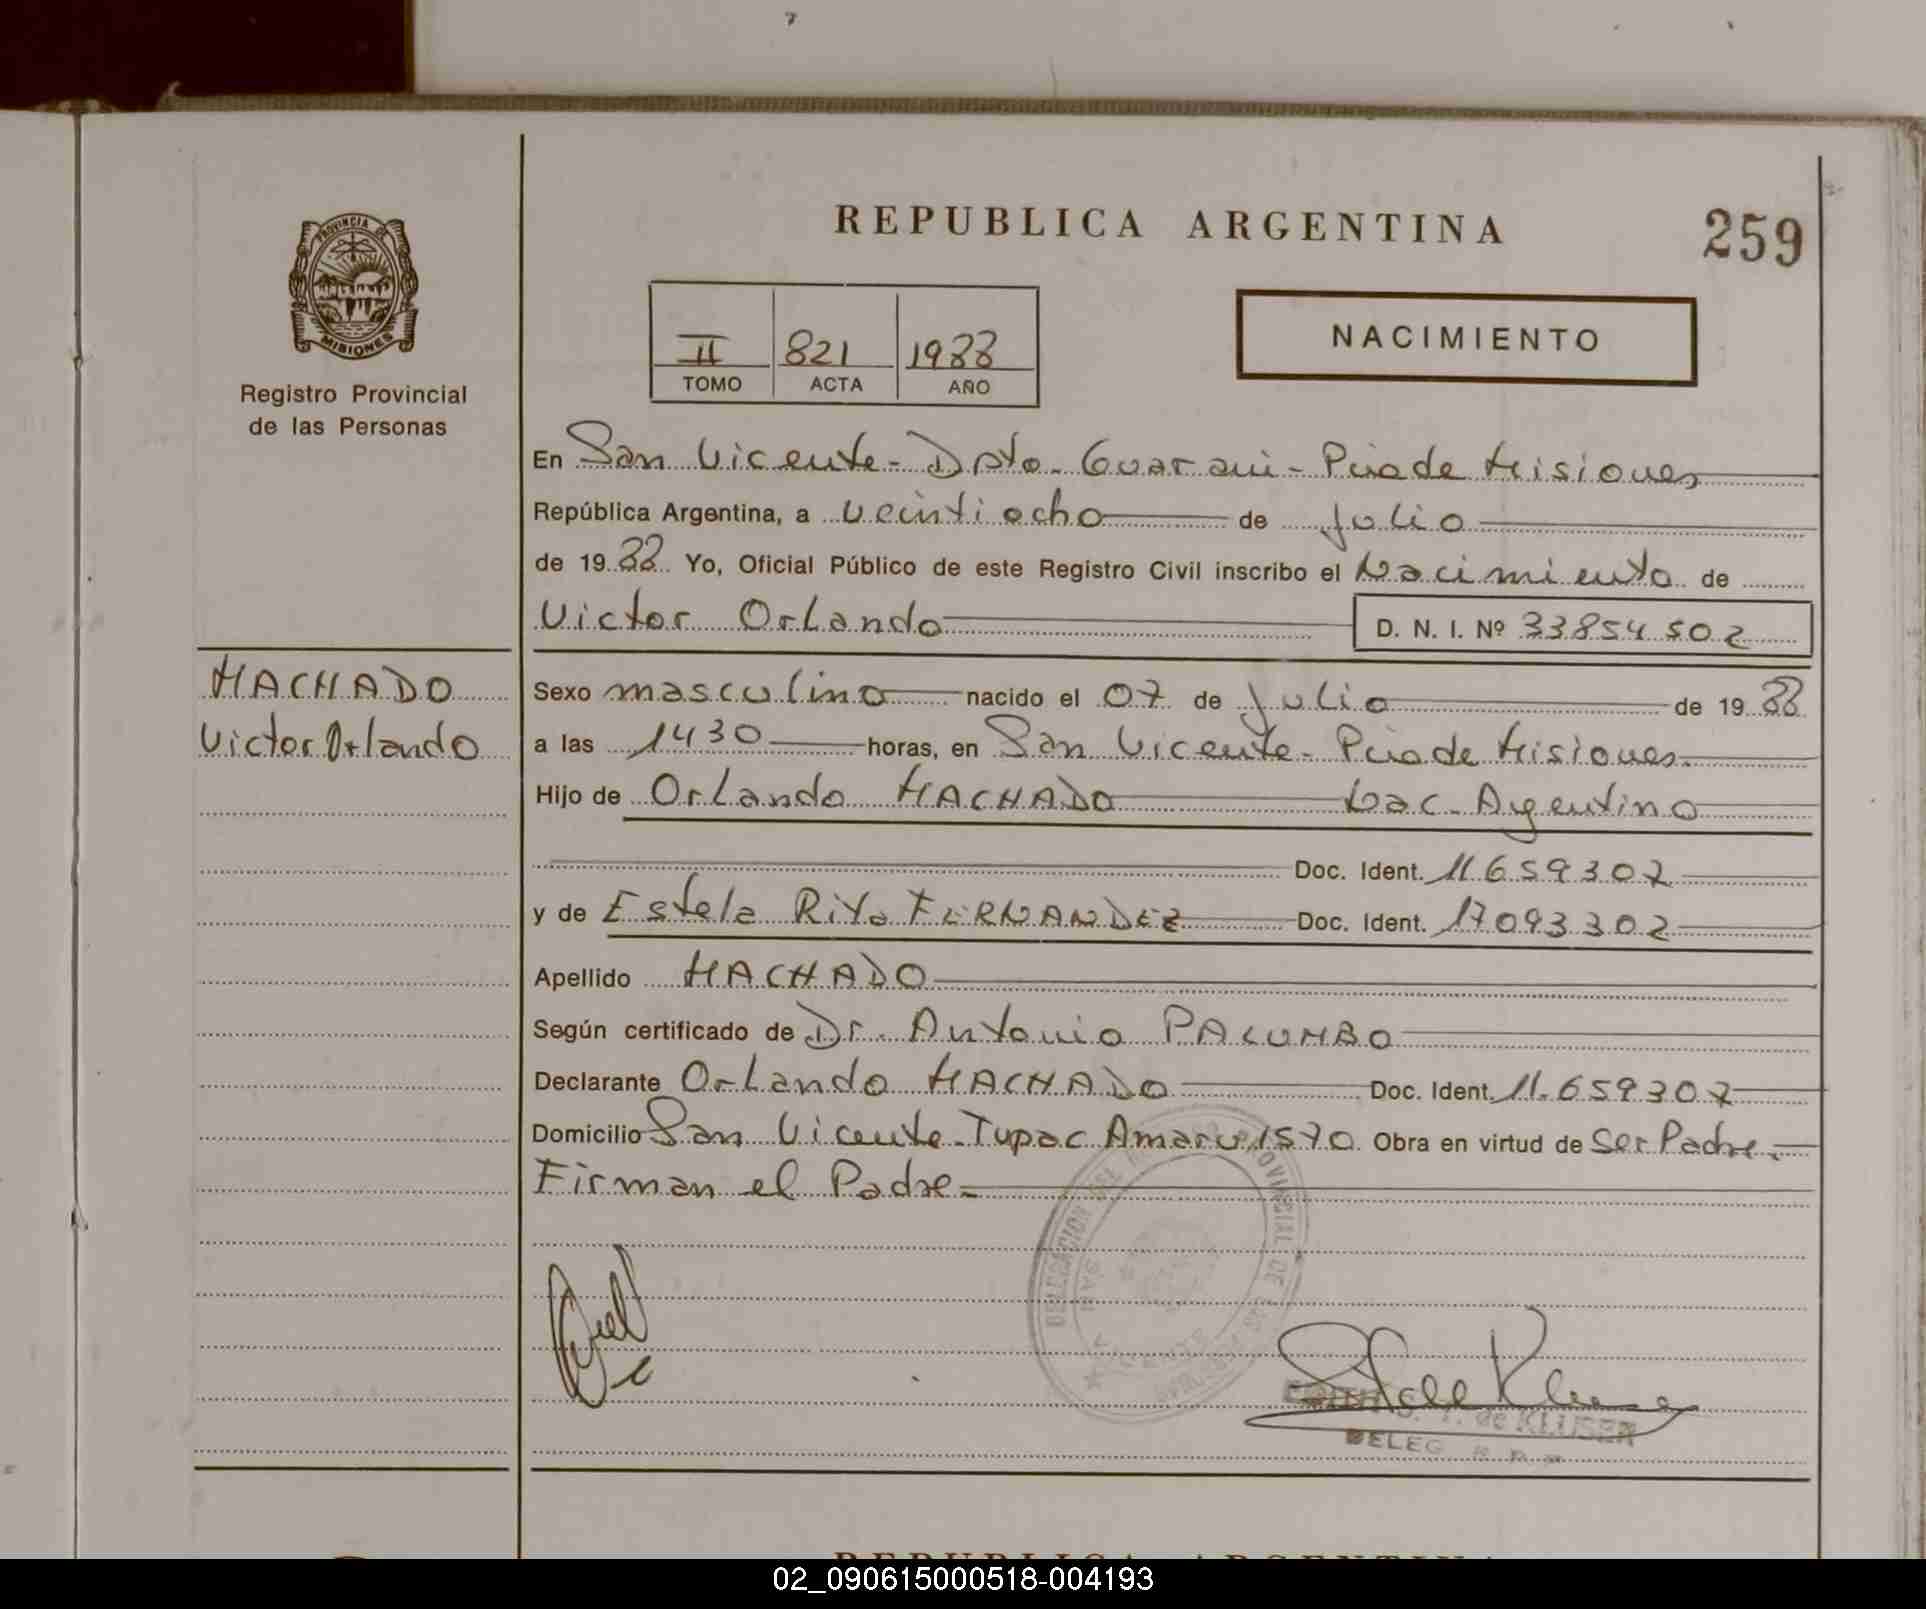 REPUBLICA ARGENTINA
259
PROVINCIA DE
MISIONES
Registro Provincial
de las Personas
II 821 1988
TOMO ACTA AÑO
NACIMIENTO
En San Vicente - Dpto. Guarani - Pcia de Misiones
República Argentina, a veintiocho de Julio
de 1988 Yo, Oficial Público de este Registro Civil inscribo el Nacimiento de
Victor Orlando D. N. I. Nº 33854502
MACHADO
Victor Orlando
Sexo masculino nacido el 07 de Julio de 1988
a las 1430 horas, en San Vicente - Pcia de Misiones.
Hijo de Orlando MACHADO Nac. Argentino
Doc. Ident. 11659307
y de Estela Rita FERNANDEZ Doc. Ident. 17093302
Apellido MACHADO
Según certificado de Dr. Antonio PALUMBO
Declarante Orlando MACHADO Doc. Ident. 11.659307
Domicilio San Vicente - Tupac Amaru 1570. Obra en virtud de Ser Padre.-
Firman el Padre.-
DELEGACION DEL PROVINCIAL DE LAS PERSONAS
SAN VICENTE
S. T. de KLUSER
DELEG. R. P. P.
REPUBLICA ARGENTINA
02_090615000518-004193